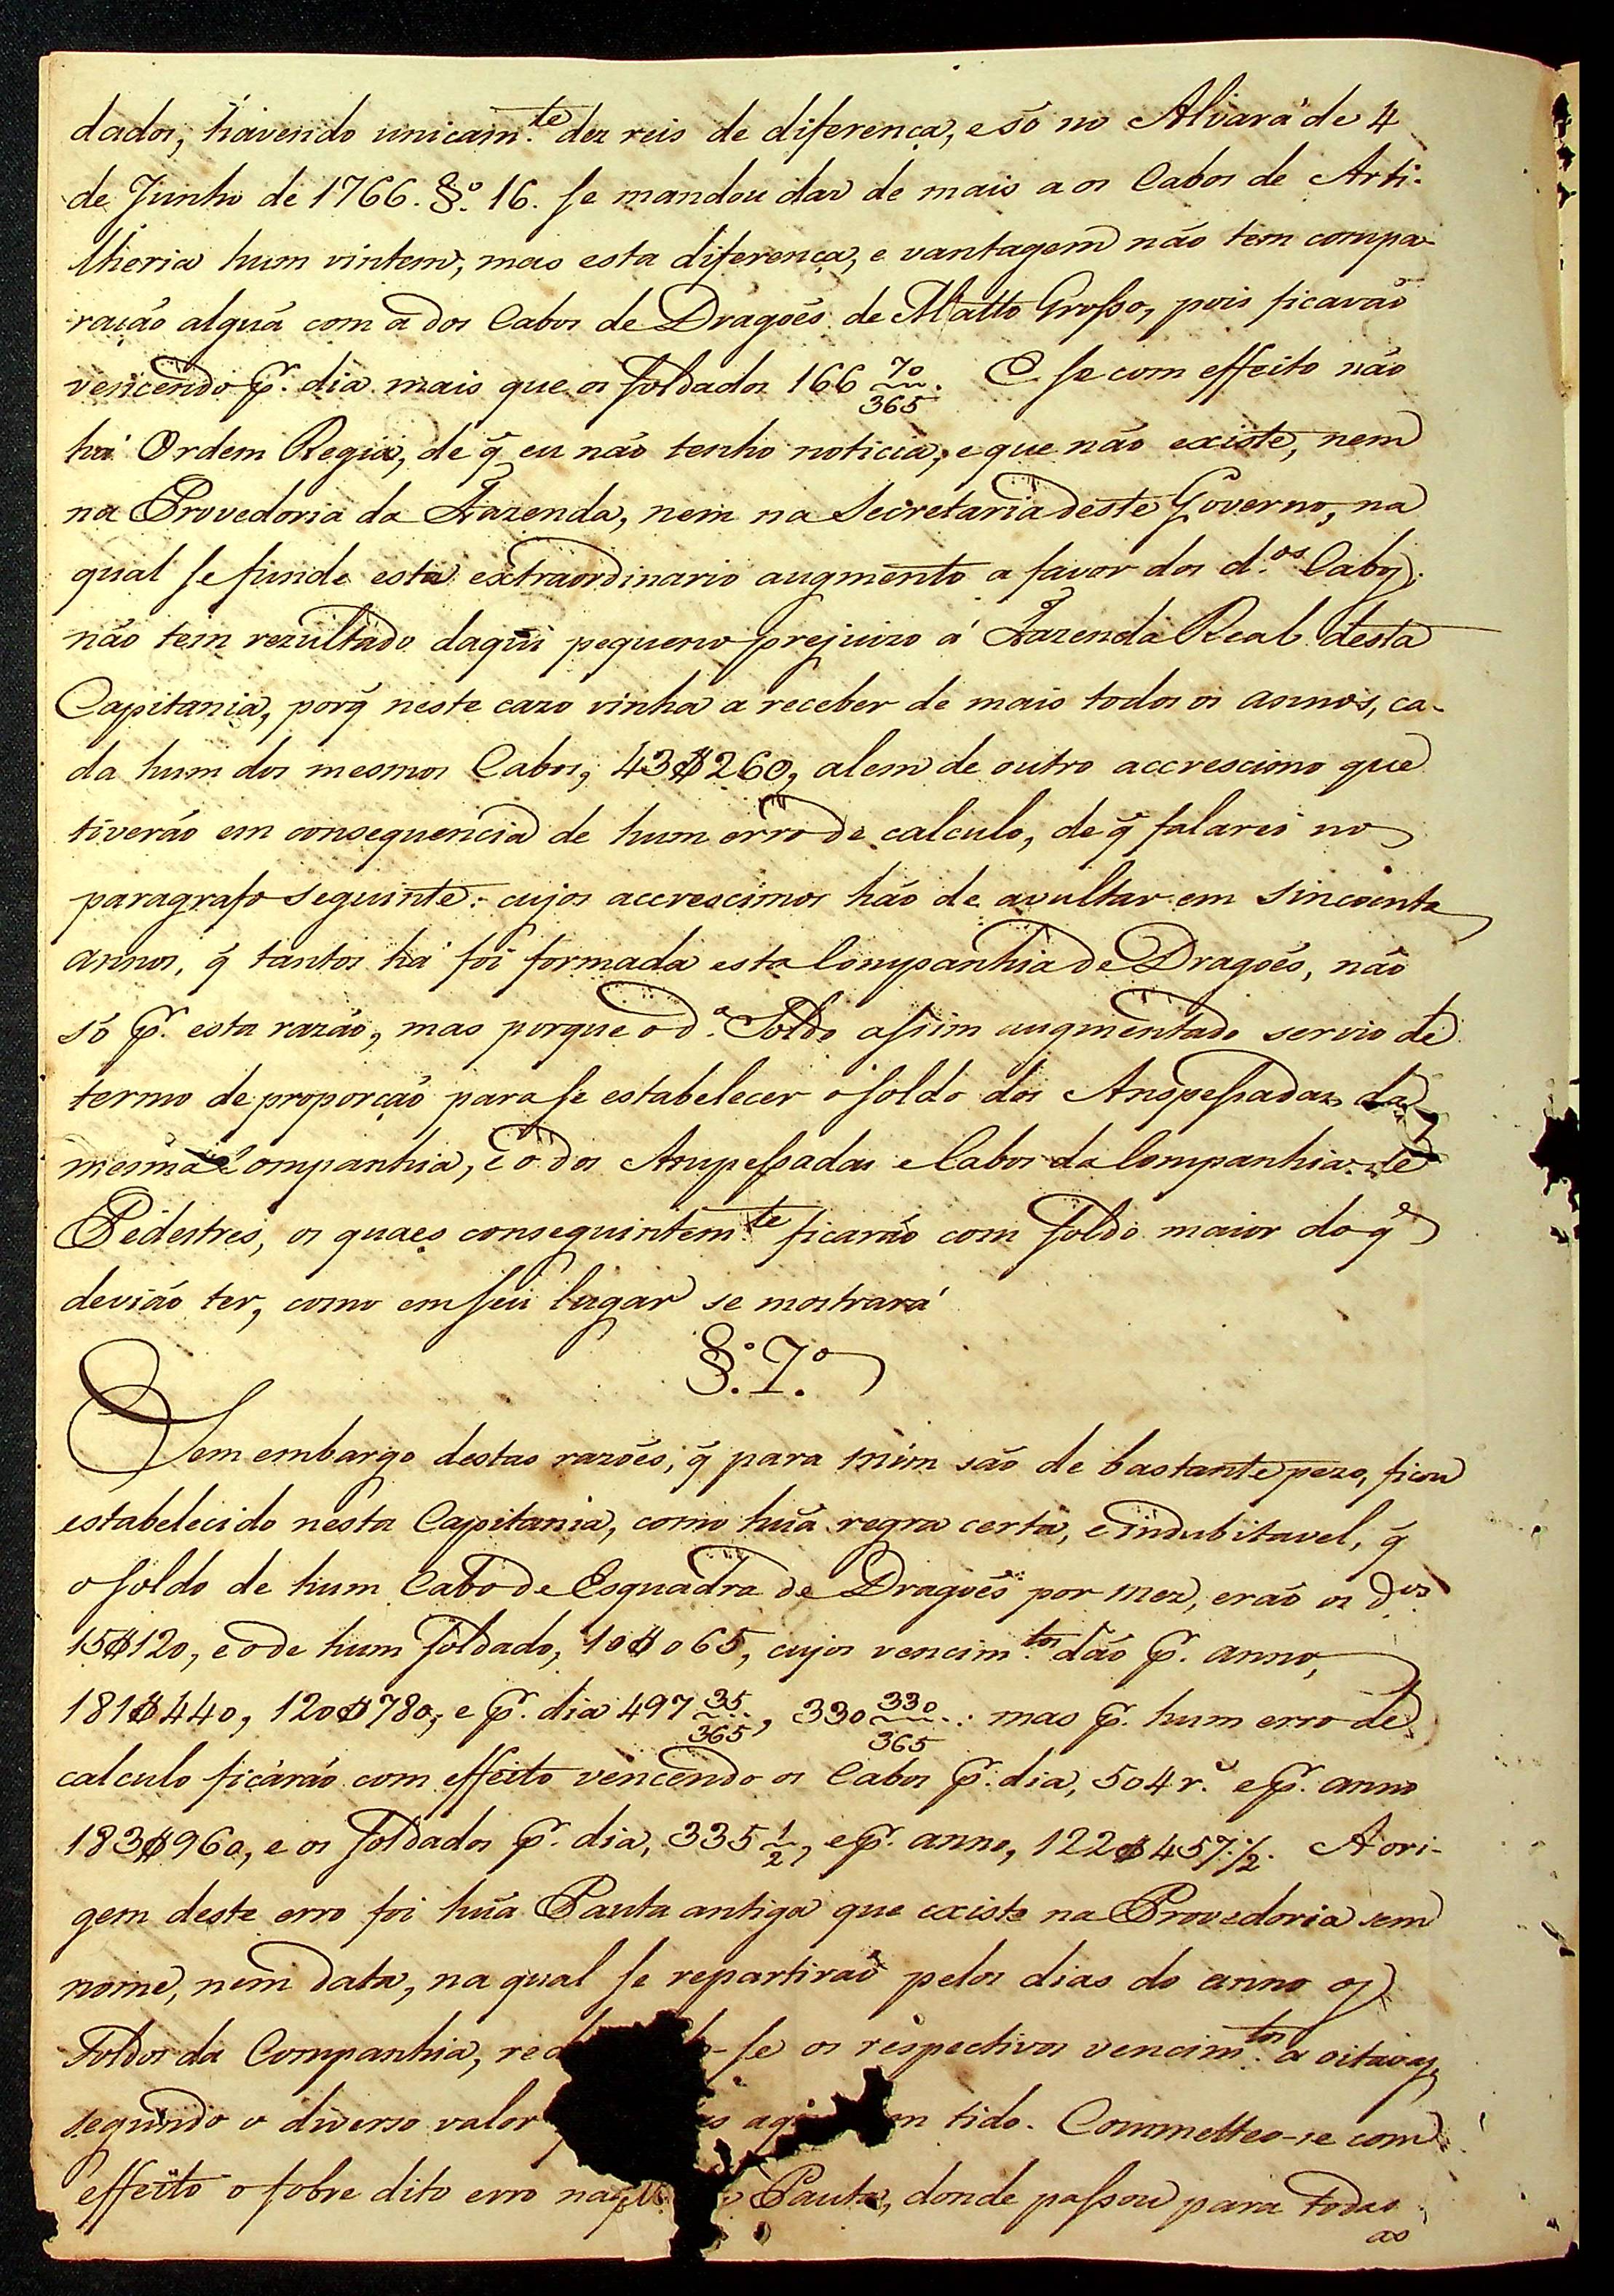 dados, havendo unicam.te dez reis de diferença, e só no Alvará de 4
de Junho de 1766. §.º 16. se mandou dar de mais a os Cabos de Arti-
lheria hum vintem, mas esta diferença, e vantagem não tem compa-
ração algũa com a dos Cabos de Dragões de Matto Grosso, pois ficavão
vencendo p.r dia mais que os soldados 166 70/365. E se com effeito não
há Ordem Regia, de q̃ eu não tenho noticia, e que não existe, nem
na Provedoria da Fazenda, nem na Secretaria deste Governo, na
qual se funde este extraordinario augmento a favor dos d.os Cabos;
não tem rezultado daqui pequeno prejuizo á Fazenda Real desta
Capitania, porq̃ neste cazo vinha a receber de mais todos os annos, ca-
da hum dos mesmos Cabos, 43$260, alem de outro accrescimo que
tiverão em consequencia de hum erro de calculo, de q̃ falarei no
paragrafo seguinte: cujos accrescimos hão de avultar em sincoenta
annos, q̃ tantos há foi formada esta Companhia de Dragões, não
só p.r esta razão, mas porque o d.º Soldo assim augmentado servio de
termo de proporção para se estabelecer o soldo dos Anspessadas da
mesma Companhia, e o dos Anspessadas e Cabos da Companhia de
Pédestres, os quaes conseguintem.te ficarão com soldo maior do q̃
devião ter, como em seu lugar se mostrará
§.º 7.º
Sem embargo destas razões, q̃ para mim são de bastante pezo, ficou
estabelecido nesta Capitania, como hũa regra certa, e indubitavel, q̃
o soldo de hum Cabo de Esquadra de Dragões por mez, erão os d.os
15$120, e o de hum soldado, 10$065, cujos vencim.tos dão p.r anno,
181$440, 120$780, e p.r dia 497 35/365, 330 330/365: mas p.r hum erro de
calculo ficárão com effeito vencendo os Cabos p.r dia, 504 r.s e p.r anno
183$960, e os soldados p.r dia, 335 1/2, e p.r anno, 122$457 1/2. A ori-
gem deste erro foi hũa Pauta antiga que existe na Provedoria sem
nome, nem data, na qual se repartirão pelos dias do anno os
soldos da Companhia, red -se os respectivos vencim.tos a oitavas,
segundo o diverso valor tido. Commetteo-se com
effeito o sobre dito erro na Pauta, donde passou para todas
as